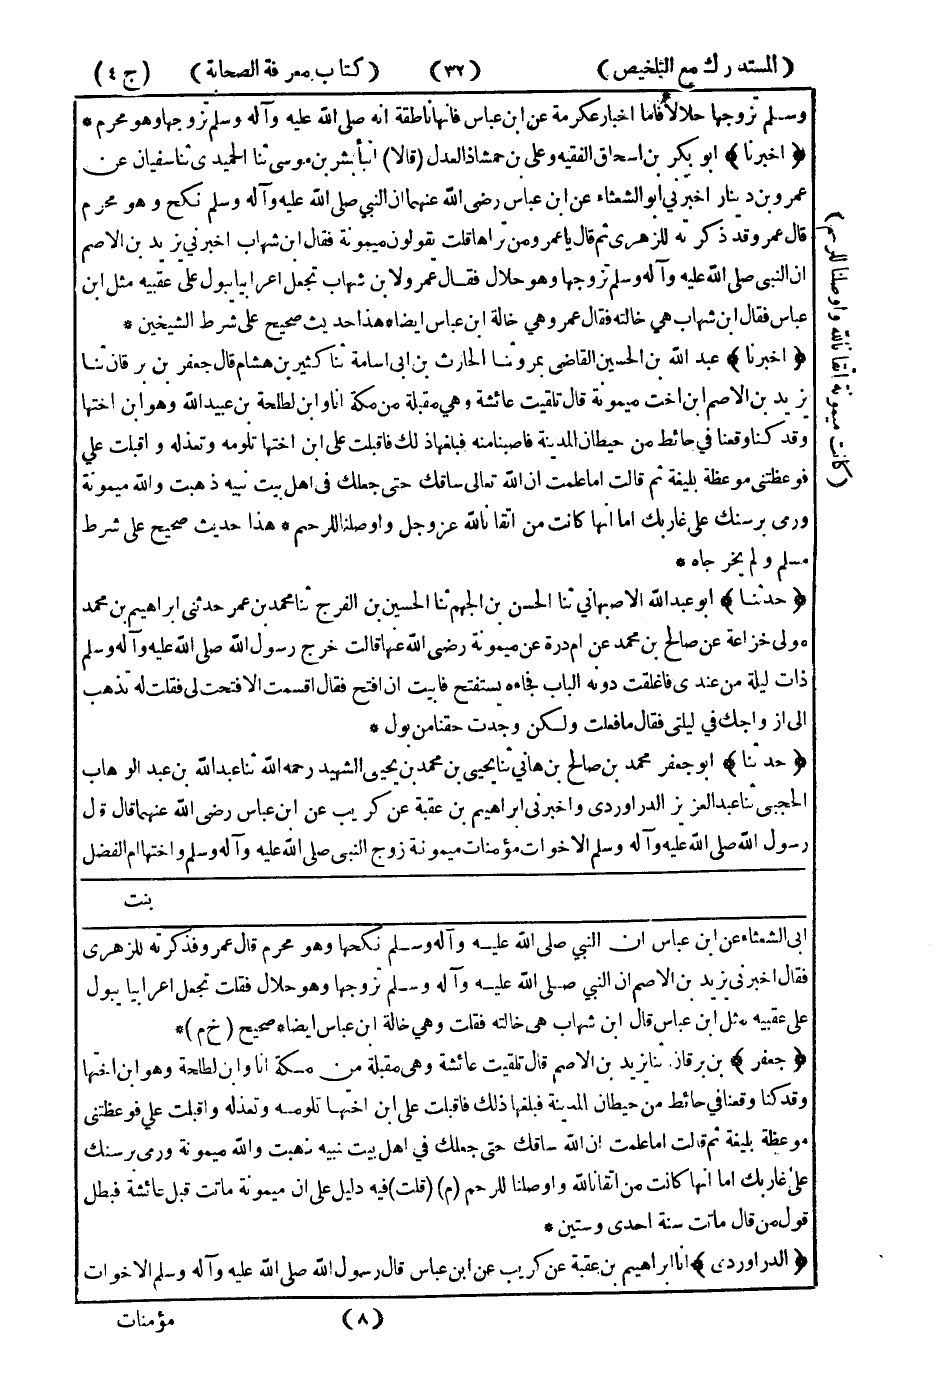 (المستدرك مع التلخيص) (٣٢) (كتاب معرفة الصحابة) (ج ٤)
وسلم تزوجها حلالا فاما اخبار عكرمة عن ابن عباس فانها ناطقة انه صلى الله عليه وآله وسلم تزوجها وهو محرم *
﴿ اخبرنا ﴾ ابو بكر بن اسحاق الفقيه وعلى بن حمشاذ العدل (قالا) انبأ بشر بن موسى ثنا الحميدى ثنا سفيان عن
عمرو بن دينار اخبرني ابو الشعثاء عن ابن عباس رضى الله عنهما ان النبي صلى الله عليه وآله وسلم نكح وهو محرم
قال عمرو وقد ذكرته للزهرى ثم قال يا عمرو ومن تراها قلت يقولون ميمونة فقال ابن شهاب اخبرني يزيد بن الاصم
ان النبى صلى الله عليه وآله وسلم تزوجها وهو حلال فقال عمرو لابن شهاب تجعل اعرابيا يبول على عقبيه مثل ابن
عباس فقال ابن شهاب هي خالته فقال عمرو وهي خالة ابن عباس ايضا * هذا حديث صحيح على شرط الشيخين *
﴿ اخبرنا ﴾ عبد الله بن الحسين القاضى بمرو ثنا الحارث بن ابى اسامة ثنا كثير بن هشام قال جعفر بن برقان ثنا
يزيد بن الاصم ابن اخت ميمونة قال تلقيت عائشة وهي مقبلة من مكة انا وابن لطلحة بن عبيد الله وهو ابن اختها
وقد كنا وقعنا في حائط من حيطان المدينة فاصبنا منه فبلغها ذلك فاقبلت على ابن اختها تلومه وتعذله و اقبلت علي
فوعظتنى موعظة بليغة ثم قالت اما علمت ان الله تعالى ساقك حتى جعلك فى اهل بيت نبيه ذهبت والله ميمونة
ورمى برسنك على غاربك اما انها كانت من اتقانا لله عز وجل واوصلنا للرحم * هذا حديث صحيح على شرط
مسلم ولم يخرجاه *
﴿ حدثنا ﴾ ابو عبد الله الاصبهاني ثنا الحسن بن الجهم ثنا الحسين بن الفرج ثنا محمد بن عمر حدثنى ابراهيم بن محمد
مولى خزاعة عن صالح بن محمد عن ام درة عن ميمونة رضى الله عنها قالت خرج رسول الله صلى الله عليه وآله وسلم
ذات ليلة من عندى فاغلقت دونه الباب فجاءه يستفتح فابيت ان افتح فقال اقسمت الا فتحت لى فقلت له تذهب
الى ازواجك في ليلتى فقال ما فعلت ولكن وجدت حقنا من بول *
﴿ حدثنا ﴾ ابو جعفر محمد بن صالح بن هاني ثنا يحيى بن محمد بن يحيى الشهيد رحمه الله ثنا عبد الله بن عبد الوهاب
الحجبى ثنا عبد العزيز الدراوردى واخبرنى ابراهيم بن عقبة عن كريب عن ابن عباس رضى الله عنهما قال قال
رسول الله صلى الله عليه وآله وسلم الاخوات مؤمنات ميمونة زوج النبي صلى الله عليه وآله وسلم واختها ام الفضل
بنت
(كانت ميمونة اتقانا لله واوصلنا للرحم)
ابى الشعثاء عن ابن عباس ان النبي صلى الله عليه وآله وسلم نكحها وهو محرم قال عمرو فذكرته للزهرى
فقال اخبرنى يزيد بن الاصم ان النبي صلى الله عليه وآله وسلم تزوجها وهو حلال فقلت تجعل اعرابيا يبول
على عقبيه مثل ابن عباس قال ابن شهاب هى خالته فقلت وهي خالة ابن عباس ايضا * صحيح (خ م) *
﴿ جعفر ﴾ بن برقان ثنا يزيد بن الاصم قال تلقيت عائشة وهى مقبلة من مكة انا وابن لطلحة وهو ابن اختها
وقد كنا وقعنا في حائط من حيطان المدينة فبلغها ذلك فاقبلت على ابن اختها تلومه وتعذله واقبلت علي فوعظتنى
موعظة بليغة ثم قالت اما علمت ان الله ساقك حتى جعلك في اهل بيت نبيه ذهبت والله ميمونة ورمى برسنك
على غاربك اما انها كانت من اتقانا لله واوصلنا للرحم (م) (قلت) فيه دليل على ان ميمونة ماتت قبل عائشة فبطل
قول من قال ماتت سنة احدى وستين *
﴿ الدراوردى ﴾ انا ابراهيم بن عقبة عن كريب عن ابن عباس قال رسول الله صلى الله عليه وآله وسلم الاخوات
(٨) مؤمنات